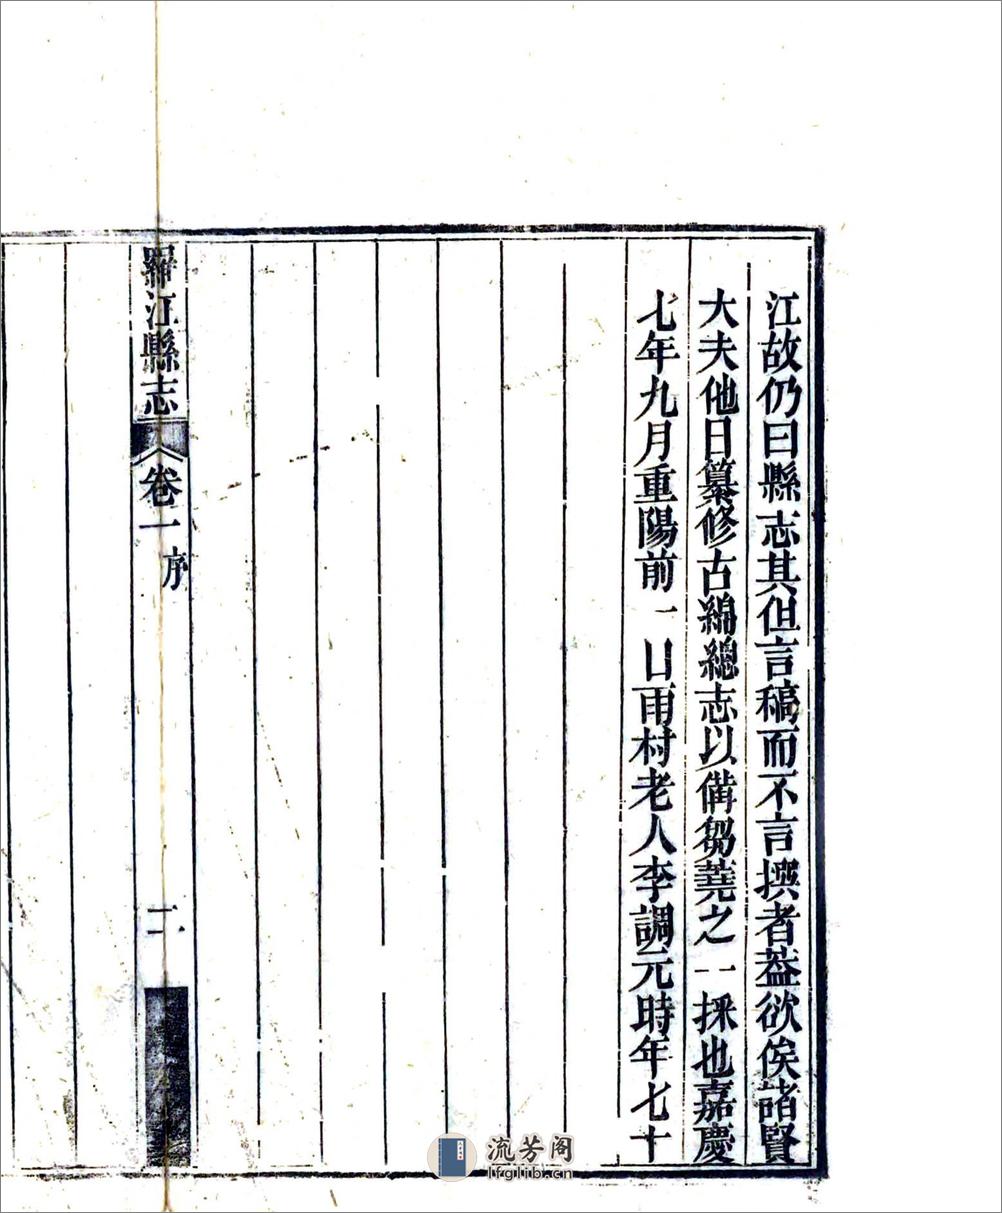 江故仍曰縣志其但言稿而不言撰者葢欲俟諸賢
大夫他日纂修古綿總志以備芻蕘之一採也嘉慶
七年九月重陽前一日雨村老人李調元時年七十
羅江縣志
卷一
序
二
流芳阁
lfglib.cn